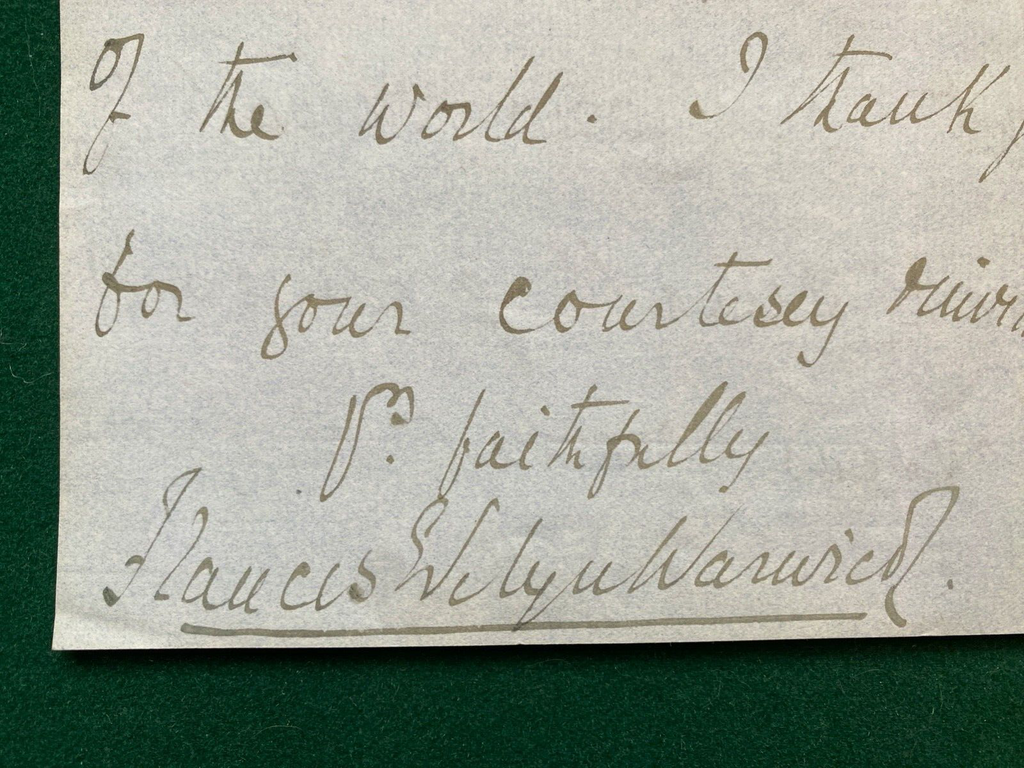 of the world. I thank
for your courtesy
Yrs. faithfully
Frances Evelyn Warwick.